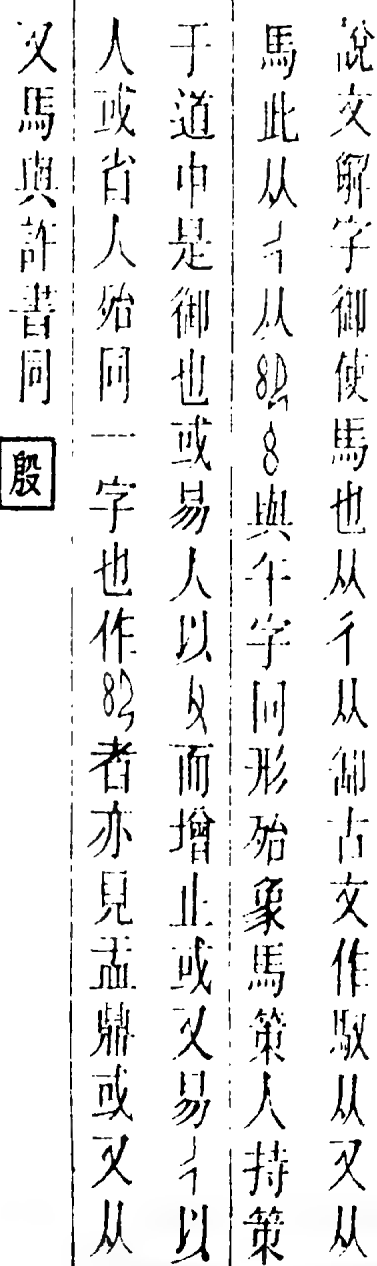 說文解字御使馬也从彳从卸古文作馭从又从
馬此从彳从與午字同形殆象馬策人持策
于道中是御也或易人以而增止或又易彳以
人或省人殆同一字也作者亦見盂鼎或又从
又馬與許書同 殷